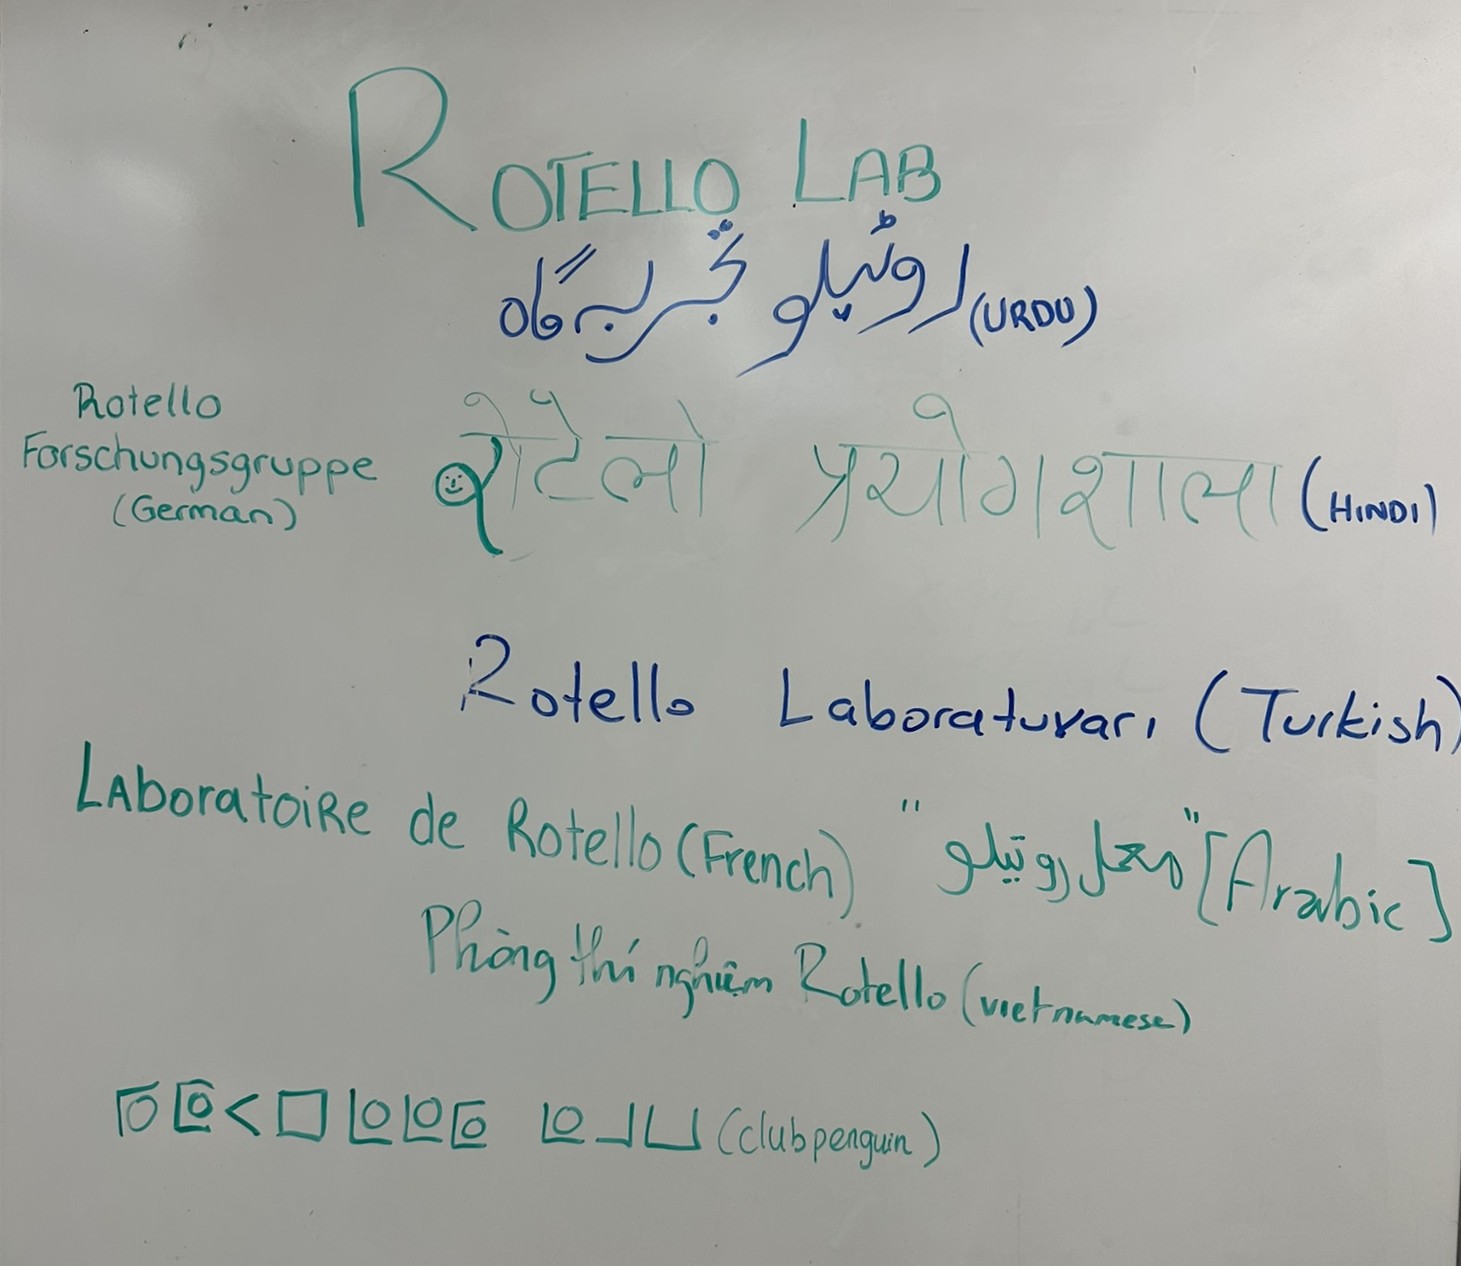 ROTELLO LAB
روٹیلو تجربہ گاہ (URDU)
Rotello
Forschungsgruppe
(German)
रोटेलो प्रयोगशाला (HINDI)
Rotello Laboraturarı (Turkish)
LAboratoiRe de Rotello (French) "معمل روتيلو" [Arabic]
Phòng thí nghiệm Rotello (vietnamese)
(club penguin)